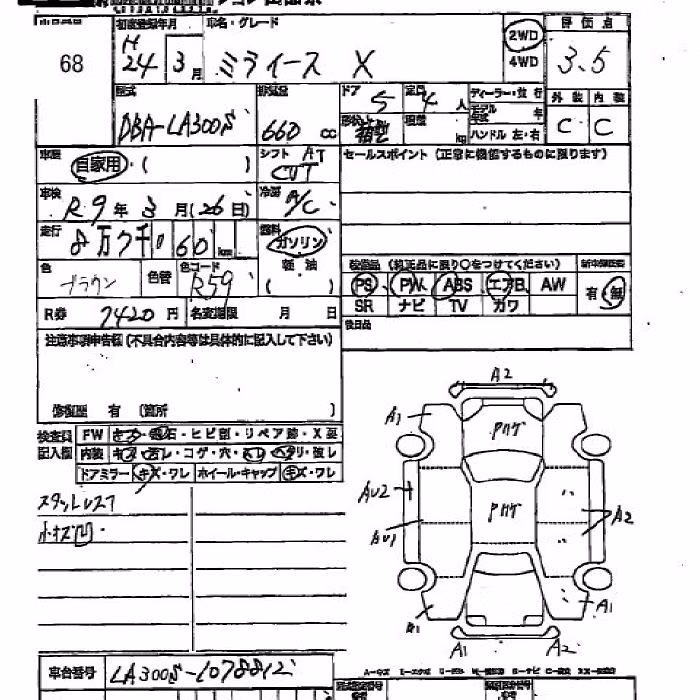 68
初度登録年月
H 24 3月
車名・グレード
ミライース X
2WD
4WD
評価点
3.5
型式
DBA-LA300S
排気量
660 cc
ドア 5
定員 4人
形状
積載 kg
ディーラー・並行
モデル年式 年
ハンドル 左・右
外装 内装
C C
車歴
自家用・( )
シフト AT
CVT
セールスポイント(正常に機能するものに限ります)
車検
R9年3月(26日)
冷房
A/C
走行
8万7千 060 km
燃料
ガソリン
軽油
( )
色
ブラウン
色替
色コード
R59
装備品 (純正品に限り○をつけてください)
新車保証書
PS PW ABS エアB AW
SR ナビ TV カワ
有・無
R券 7420円
名変期限 月 日
後日品
注意事項申告欄(不具合内容等は具体的に記入して下さい)
修復歴 有 (箇所
検査員記入欄
FW キズ・飛石・ヒビ割・リペア跡・X要
内装 キズ・汚レ・コゲ・穴・スレ・ヘタリ・破レ
ドアミラー キズ・ワレ ホイール・キャップ キズ・ワレ
スタッドレス7
小キズ凹
A2
A1
アハゲ
AU2
アハゲ
A2
AU1
A1
A1
A1
A2
車台番号
LA300S-1078812